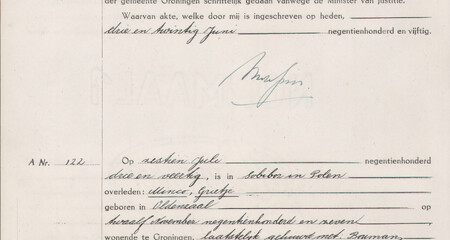 der gemeente Groningen schriftelijk gedaan vanwege de Minister van Justitie.
Waarvan akte, welke door mij is ingeschreven op heden,
drie en twintig Juni negentienhonderd en vijftig.
A Nr. 122
Op zestien Juli negentienhonderd
drie en veertig, is in Sobibor in Polen
overleden: Menco, Grietje
geboren in Oldenzaal op
twaalf November negentienhonderd en zeven
wonende te Groningen, laatstelijk gehuwd met Bouman,